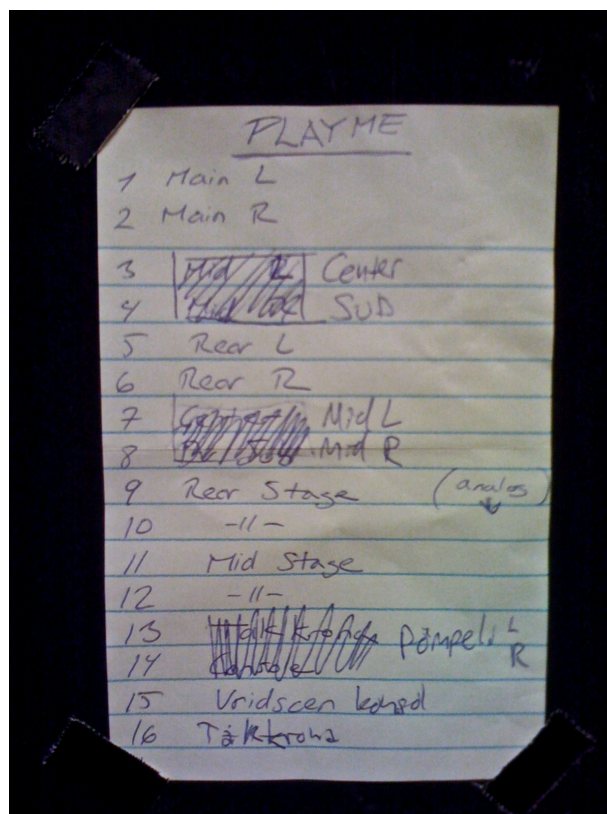 PLAYME
1 Main L
2 Main R
3 Center
4 SUB
5 Rear L
6 Rear R
7 Mid L
8 Mid R
9 Rear Stage (analog)
10 -11-
11 Mid Stage
12 -11-
13 Pompeli L
14 R
15 Vridscen
16